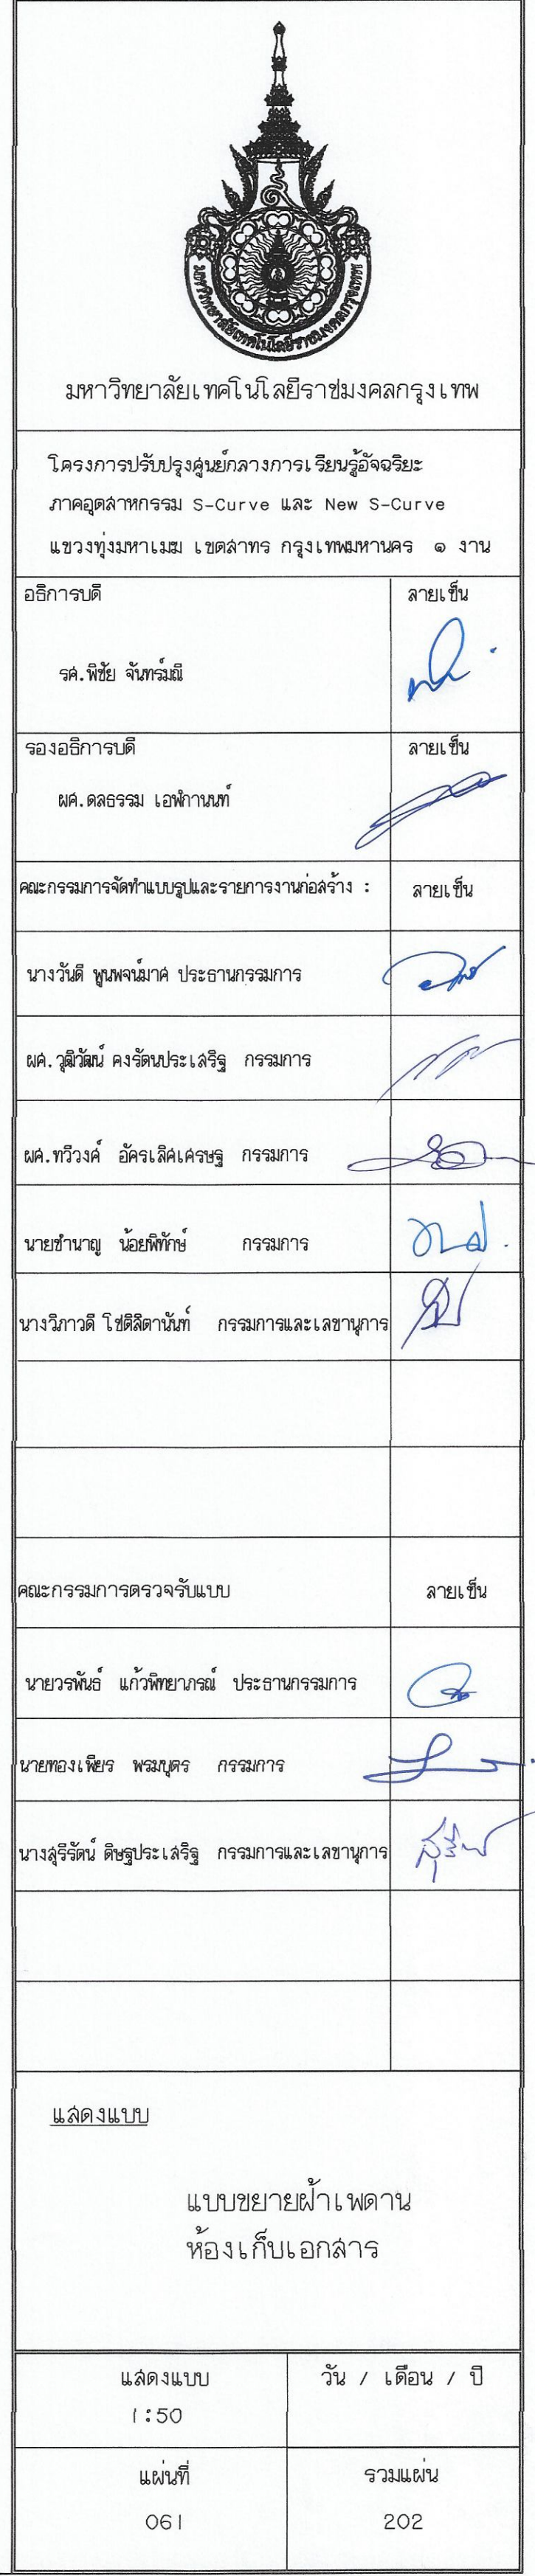 มหาวิทยาลัยเทคโนโลยีราชมงคลกรุงเทพ
มหาวิทยาลัยเทคโนโลยีราชมงคลกรุงเทพ
โครงการปรับปรุงศูนย์กลางการเรียนรู้อัจฉริยะ
ภาคอุตสาหกรรม S-Curve และ New S-Curve
แขวงทุ่งมหาเมฆ เขตสาทร กรุงเทพมหานคร ๑ งาน
อธิการบดี ลายเซ็น
รศ.พิชัย จันทร์มณี
รองอธิการบดี ลายเซ็น
ผศ.ดลธรรม เอฬกานนท์
คณะกรรมการจัดทำแบบรูปและรายการงานก่อสร้าง : ลายเซ็น
นางวันดี พูนพจน์มาศ ประธานกรรมการ
ผศ.วุฒิวัฒน์ คงรัตนประเสริฐ กรรมการ
ผศ.ทวีวงค์ อัครเลิศเศรษฐ กรรมการ
นายชำนาญ น้อยพิทักษ์ กรรมการ
นางวิภาวดี โชติลิตานันท์ กรรมการและเลขานุการ
คณะกรรมการตรวจรับแบบ ลายเซ็น
นายวรพันธ์ แก้วพิทยาภรณ์ ประธานกรรมการ
นายทองเพียร พรมบุตร กรรมการ
นางสุรีรัตน์ ดิษฐประเสริฐ กรรมการและเลขานุการ
แสดงแบบ
แบบขยายฝ้าเพดาน
ห้องเก็บเอกสาร
แสดงแบบ วัน / เดือน / ปี
1:50
แผ่นที่ รวมแผ่น
061 202